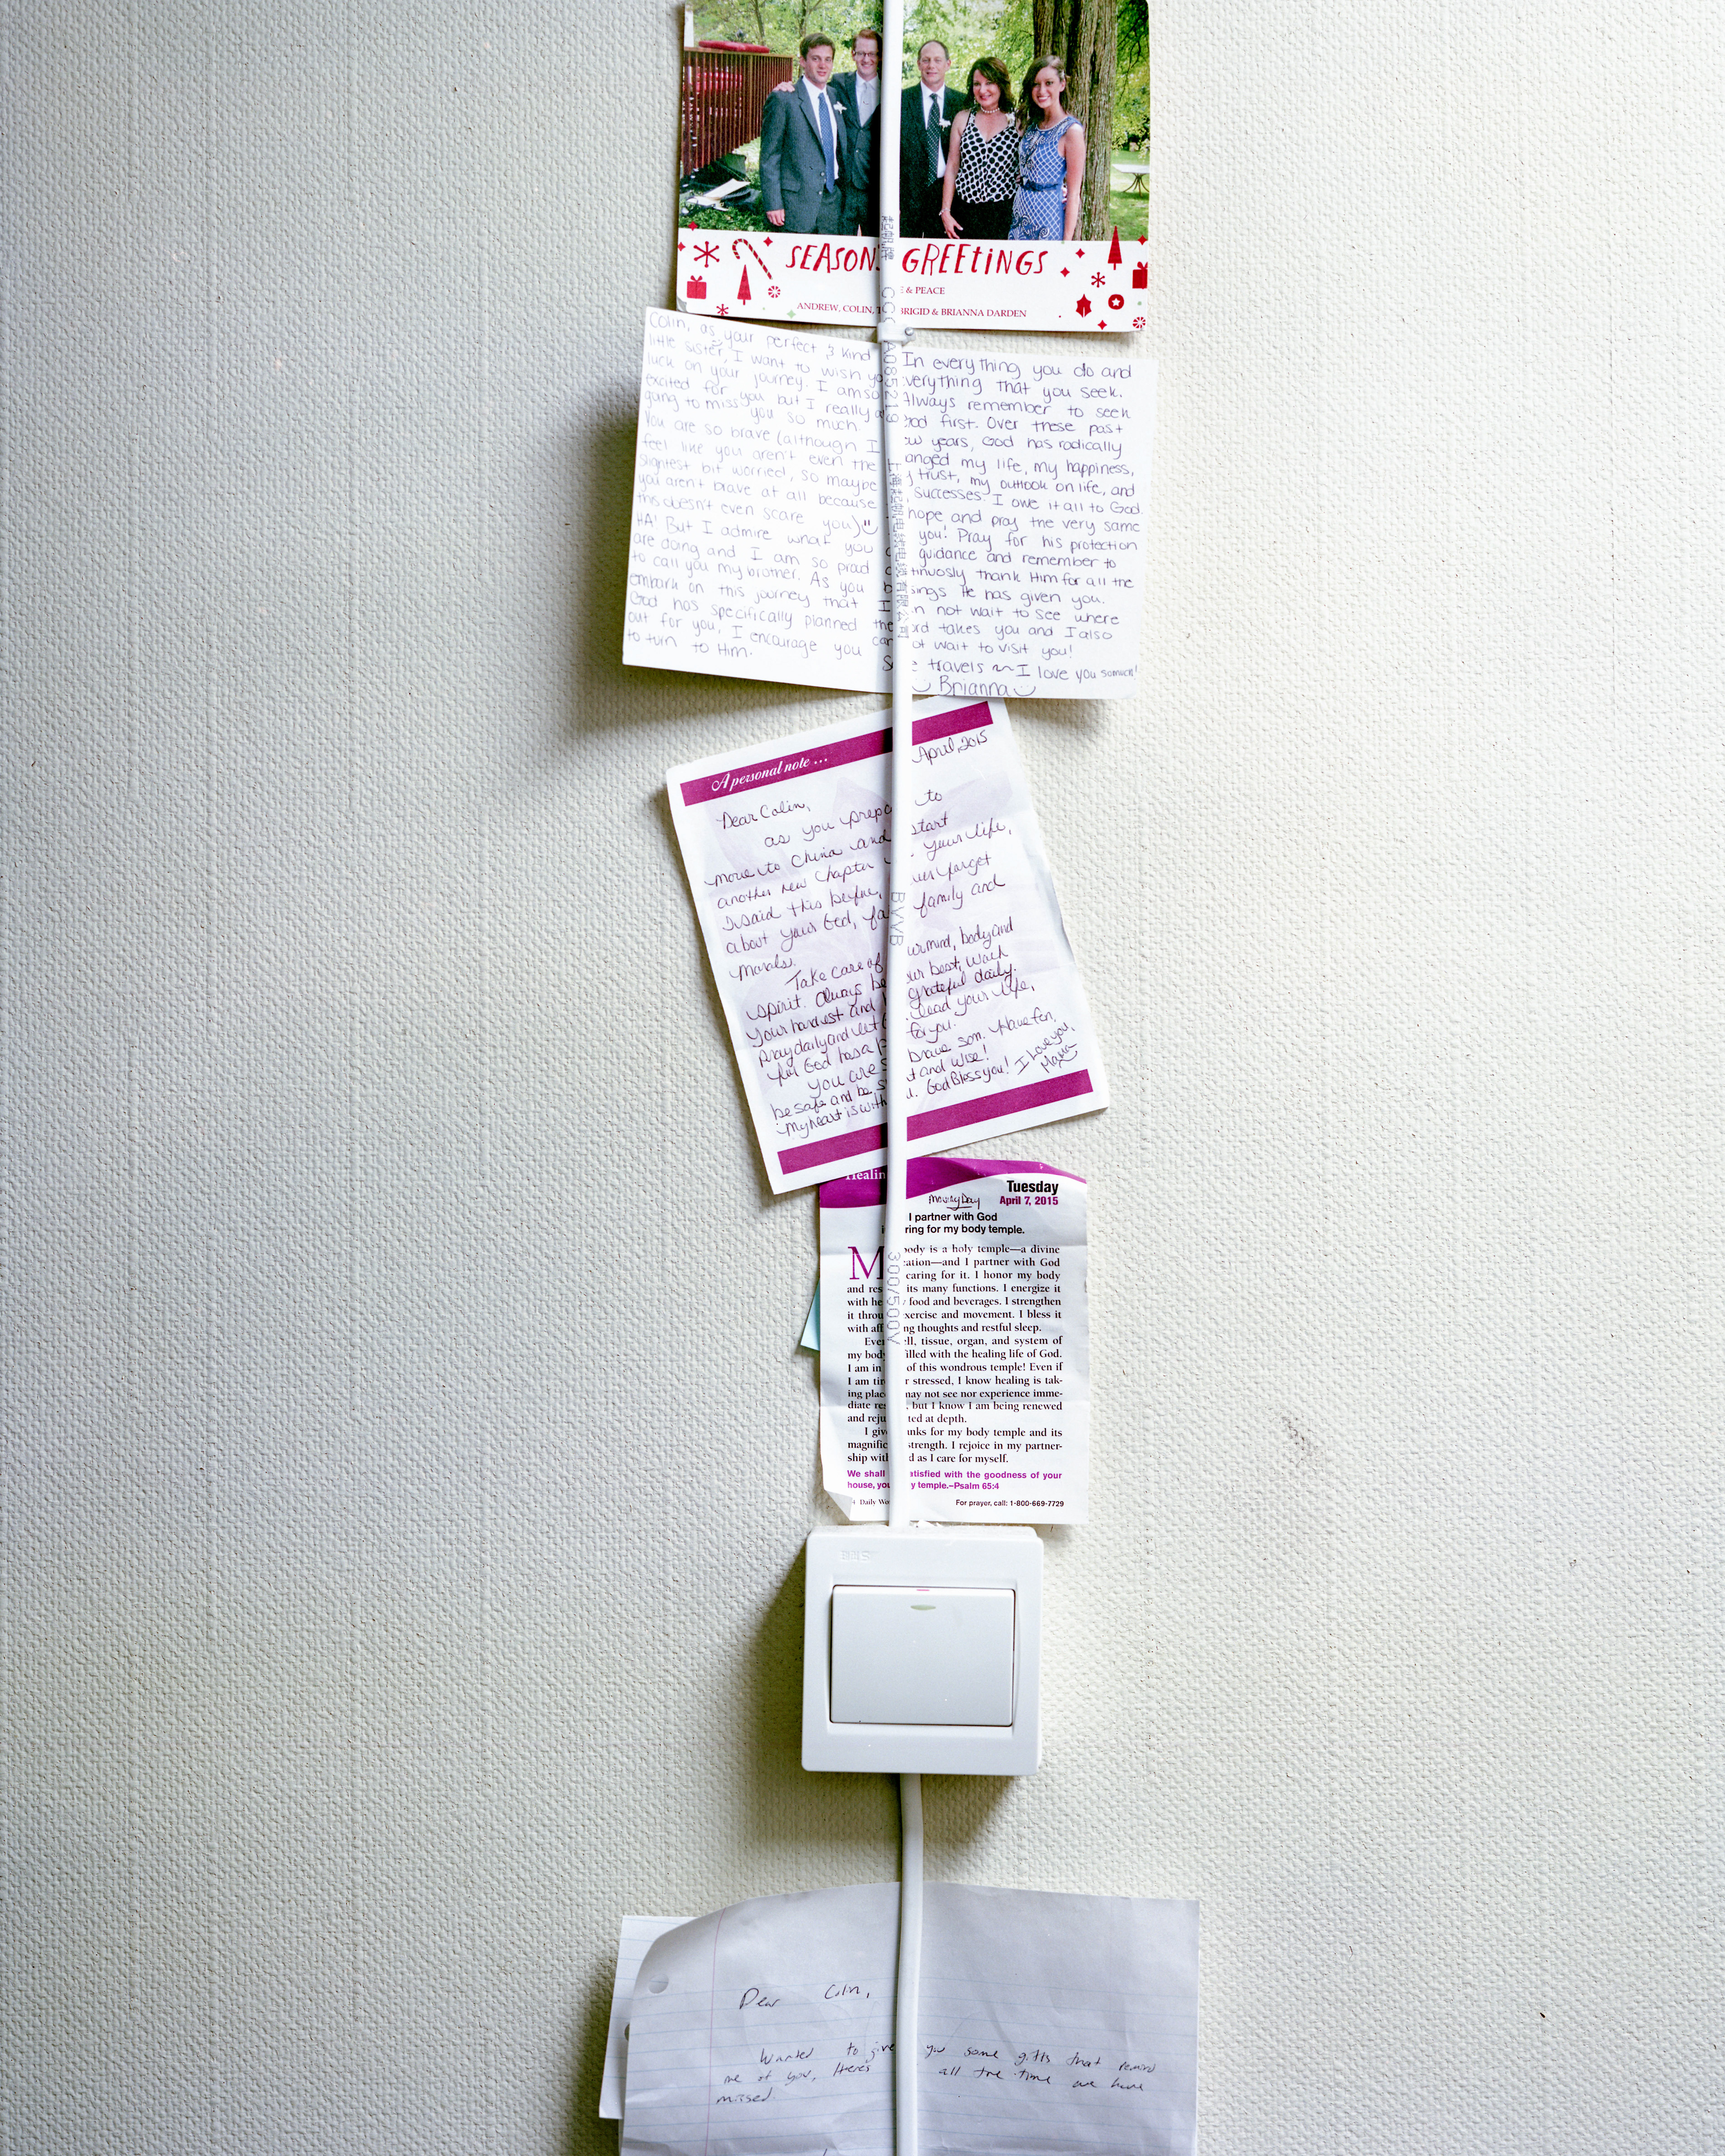 SEASON'S GREETINGS
& PEACE
ANDREW, COLIN, BRIGID & BRIANNA DARDEN
Colin, as your perfect & kind
little sister, I want to wish yo
luck on your journey. I am so
excited for you but I really a
going to miss you so much.
You are so brave (although I
feel like you aren't even the
slightest bit worried, so maybe
you aren't brave at all because
this doesn't even scare you)
HA! But I admire what you
are doing and I am so proud
to call you my brother. As you
embark on this journey that
God has specifically planned
out for you, I encourage you
to turn to Him.
In everything you do and
everything that you seek.
Always remember to seek
God first. Over these past
ew years, God has radically
anged my life, my happiness,
trust, my outlook on life, and
successes. I owe it all to God
hope and pray the very same
you! Pray for his protection
guidance and remember to
tinuosly thank Him for all the
sings He has given you.
n not wait to see where
ord takes you and I also
ot wait to visit you!
travels ~ I love you somuch!
Brianna
A personal note ...
April, 2015
Dear Colin,
as you prepa to
move to China and start
another new chapter your life,
I said this before, ver forget
about your God, fa family and
morals.
Take care of ur mind, body and
spirit. Always be ur best, work
your hardest and grateful daily.
pray daily and let lead your life,
for God has a p for you.
You are s brave son. Have fun,
be safe and be s t and wise!
My heart is with u. God Bless you! I love you,
Mama
Healin
Tuesday
Moving Day April 7, 2015
I partner with God
ring for my body temple.
M ody is a holy temple—a divine
ation—and I partner with God
caring for it. I honor my body
and res its many functions. I energize it
with he food and beverages. I strengthen
it throu xercise and movement. I bless it
with aff ng thoughts and restful sleep.
Ever ll, tissue, organ, and system of
my body illed with the healing life of God.
I am in of this wondrous temple! Even if
I am tir r stressed, I know healing is tak-
ing plac may not see nor experience imme-
diate res , but I know I am being renewed
and reju ted at depth.
I giv nks for my body temple and its
magnific strength. I rejoice in my partner-
ship with d as I care for myself.
We shall atisfied with the goodness of your
house, you y temple.–Psalm 65:4
4 Daily Wo For prayer, call: 1-800-669-7729
CCC A085219
BVVB
300/500V
Dear Colin,
Wanted to give you some gifts that remind
me of you, Here's all the time we have
missed.